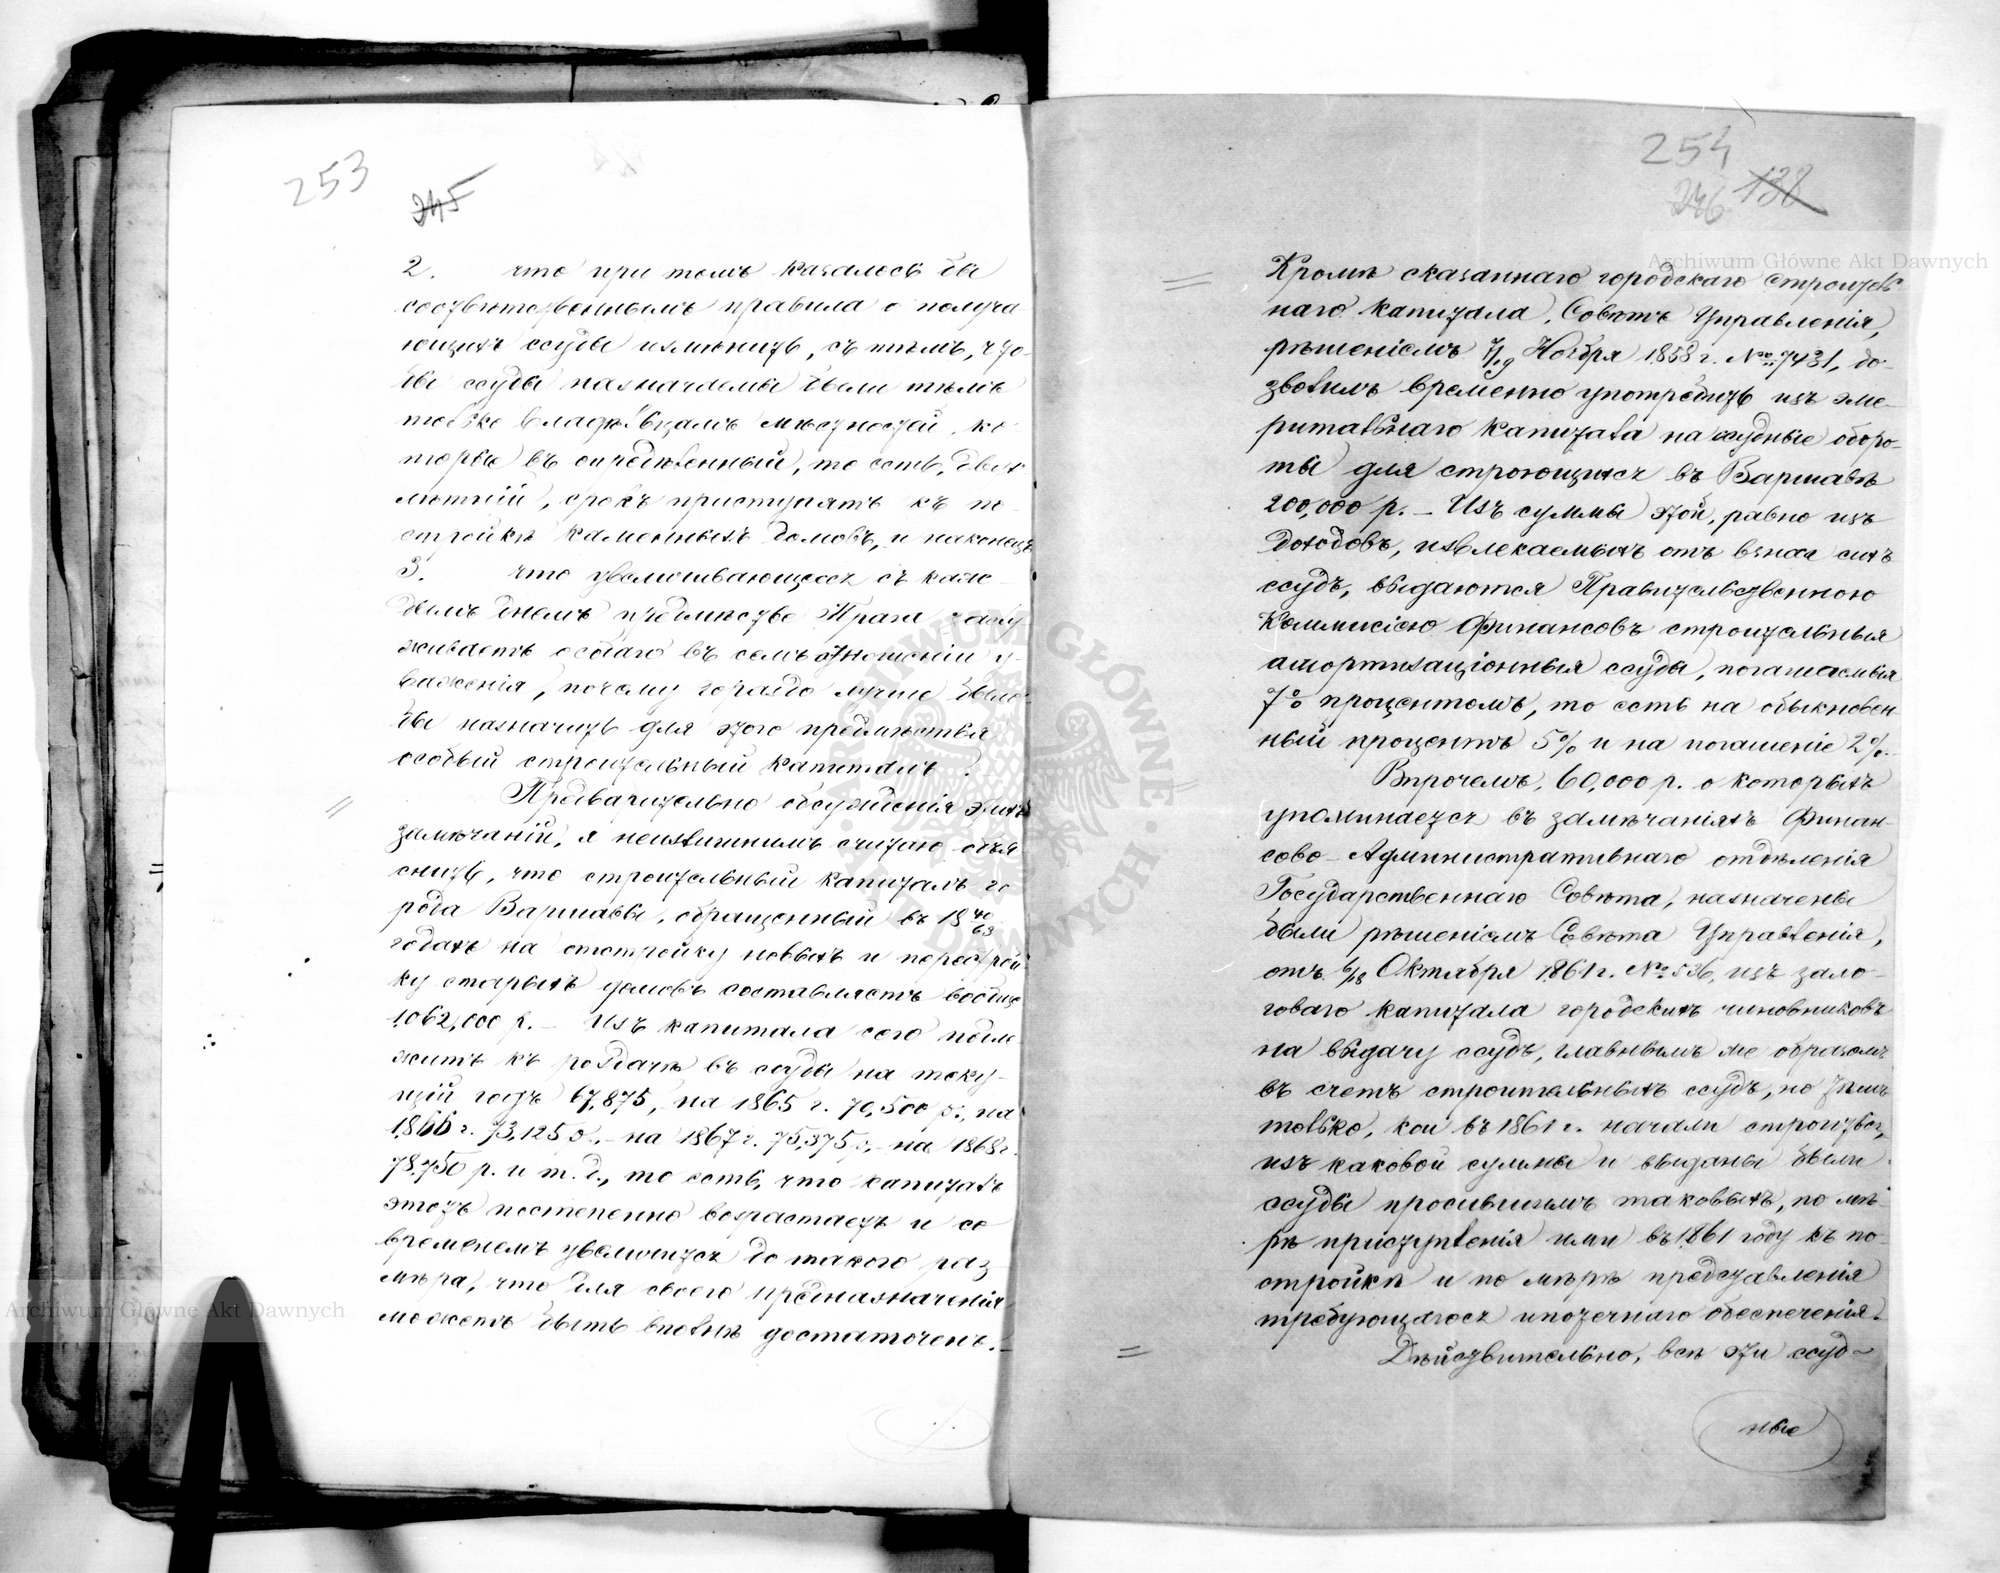 253
245
2. что при томъ казалось бы
соотвѣтственнымъ правила о получа
ющихъ ссуды измѣнить, съ тѣмъ, что-
бы ссуды назначаемы были тѣмъ
только владѣльцамъ мѣстностей, ко
торые въ опредѣленный, то есть, двух
лѣтній, срокъ приступятъ къ по
стройкѣ каменныхъ домовъ, и наконецъ
3. что увеличивающееся съ каж-
дымъ днемъ предмѣстье Прага заслу
живаетъ особаго въ семъ отношеніи у-
важенія, почему гораздо лучше было
бы назначить для этого предмѣстья
особый строительный капиталъ.
Предварительно обсужденія этихъ
замѣчаній, я неизлишнимъ считаю объя
снить, что строительный капиталъ го
рода Варшавы, обращенный въ 18 40/63
годахъ на отстройку новыхъ и перестрой
ку старыхъ домовъ составляетъ вообще
1,062,000 р. — Изъ капитала сего подле
житъ къ роздачѣ въ ссуды на теку-
щій годъ 67,875, на 1865 г. 70,500 р., на
1866 г. 73,125 р., на 1867 г. 75,375 р., на 1868 г.
78,750 р. и т. д., то есть, что капиталъ
этотъ постепенно возрастаетъ и со
временемъ увеличится до такого раз
мѣра, что для своего предназначенія
можетъ быть вполнѣ достаточенъ. —
254
246 138
Кромѣ сказаннаго городскаго строитель
наго капитала, Совѣтъ Управленія,
рѣшеніемъ 7/19 Ноября 1858 г. № 7431, до-
зволилъ временно употребить изъ эме-
ритальнаго капитала на ссудные оборо-
ты для строющихся въ Варшавѣ
200,000 р. — Изъ суммы этой, равно изъ
доходовъ, извлекаемыхъ отъ взнач сихъ
ссудъ, выдаются Правительственною
Коммисіею Финансовъ строительныя
амортизаціонныя ссуды, погашаемыя
7% процентомъ, то есть на обыкновен-
ный процентъ 5% и на погашеніе 2%.
Впрочемъ, 60,000 р. о которыхъ
упоминается въ замѣчаніяхъ Финан-
сово-Административнаго отдѣленія
Государственнаго Совѣта, назначены
были рѣшеніемъ Совѣта Управленія,
отъ 6/18 Октября 1861 г. № 536, изъ зало-
говаго капитала городскихъ чиновниковъ
на выдачу ссудъ, главнымъ же образомъ
въ счетъ строительныхъ ссудъ, но тѣмъ
только, кои въ 1861 г. начали строиться,
изъ каковой суммы и выданы были
ссуды просившимъ таковыхъ, по мѣ-
рѣ приступленія ими въ 1861 году къ по-
стройкѣ и по мѣрѣ представленія
требующагося ипотечнаго обеспеченія.
Дѣйствительно, всѣ эти ссуд-
ные
Archiwum Główne Akt Dawnych
Archiwum Główne Akt Dawnych
ARCHIWUM GŁÓWNE AKT DAWNYCH